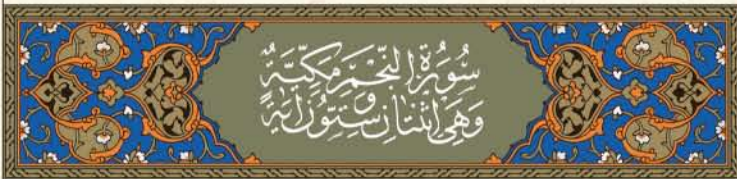 سُورَةُ النَّجْمِ مَكِّيَّةٌ
وَهِيَ اثْنَتَانِ وَسِتُّونَ آيَةً